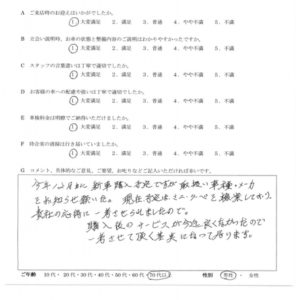 A ご来店時のお迎えはいかがでしたか。
1. 大変満足 2. 満足 3. 普通 4. やや不満 5. 不満
B 立会い説明時、お車の状態と整備内容のご説明はわかりやすかったですか。
1. 大変満足 2. 満足 3. 普通 4. やや不満 5. 不満
C スタッフの言葉遣いは丁寧で適切でしたか。
1. 大変満足 2. 満足 3. 普通 4. やや不満 5. 不満
D お客様の車への配慮や扱いは丁寧で適切でしたか。
1. 大変満足 2. 満足 3. 普通 4. やや不満 5. 不満
E 車検料金は明瞭でご納得いただけましたか。
1. 大変満足 2. 満足 3. 普通 4. やや不満 5. 不満
F 待合室の清掃は行き届いていましたか。
1. 大変満足 2. 満足 3. 普通 4. やや不満 5. 不満
G コメント、具体的なご意見、ご要望、お叱りなどご記入いただければ幸いです。
今年12月までに 新車購入 予定ですが 取扱い車種・メーカ
をお知らせ願いたい。現在
貴社の応待に一番させられましたので。
購入後のサービスが今迄良くなかったので
一番させて頂く
ご年齢 10代・20代・30代・40代・50代・60代・70代以上 性別 男性・女性